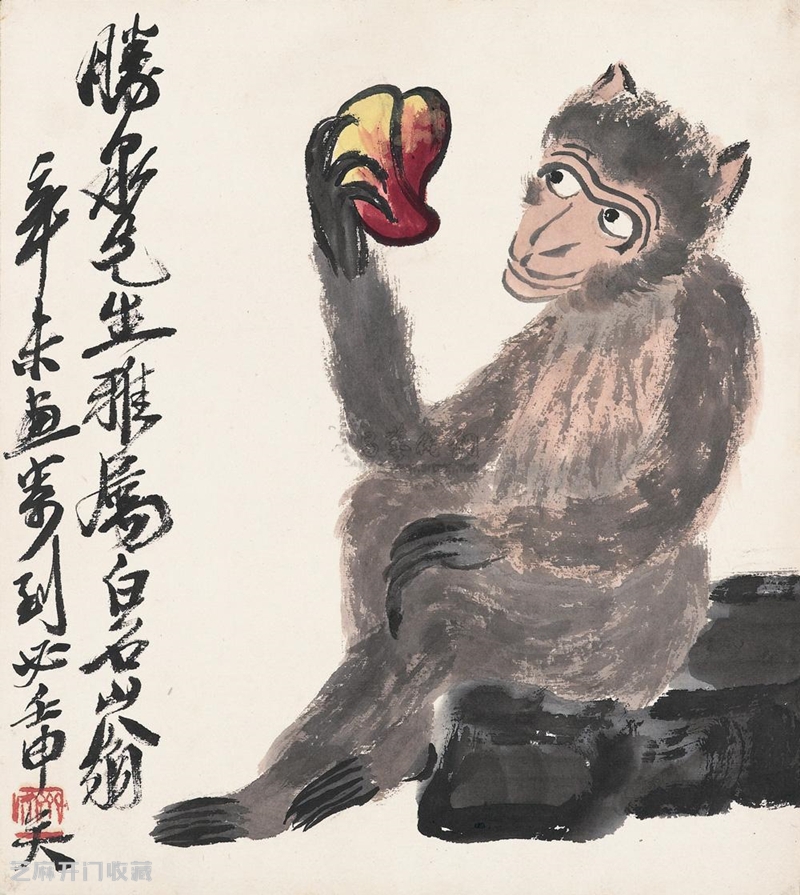 勝泉先生雅屬白石山翁
辛未画寄到必壬申矣
芝麻开门收藏